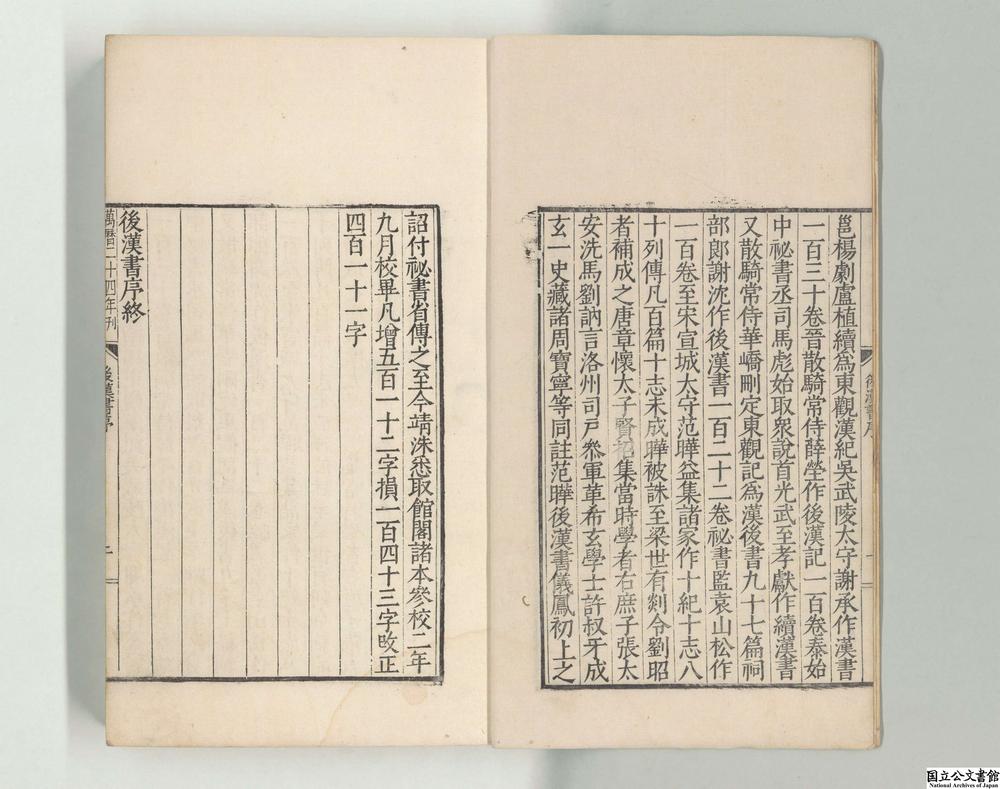 邕楊劇盧植續爲東觀漢紀吳武陵太守謝承作漢書
一百三十卷晉散騎常侍薛瑩作後漢記一百卷泰始
中祕書丞司馬彪始取衆說首光武至孝獻作續漢書
又散騎常侍華嶠刪定東觀記爲漢後書九十七篇祠
部郎謝沈作後漢書一百二十二卷祕書監袁山松作
一百卷至宋宣城太守范曄益集諸家作十紀十志八
十列傳凡百篇十志未成曄被誅至梁世有剡令劉昭
者補成之唐章懷太子賢招集當時學者右庶子張太
安洗馬劉訥言洛州司戸叅軍革希玄學士許叔牙成
玄一史藏諸周寶寧等同註范曄後漢書儀鳳初上之
後漢書序
詔付祕書省傳之至今靖洙悉取館閣諸本參校二年
九月校畢凡增五百一十二字損一百四十三字改正
四百一十一字
後漢書序終
萬曆二十四年刊
後漢書序
二
国立公文書館
National Archives of Japan